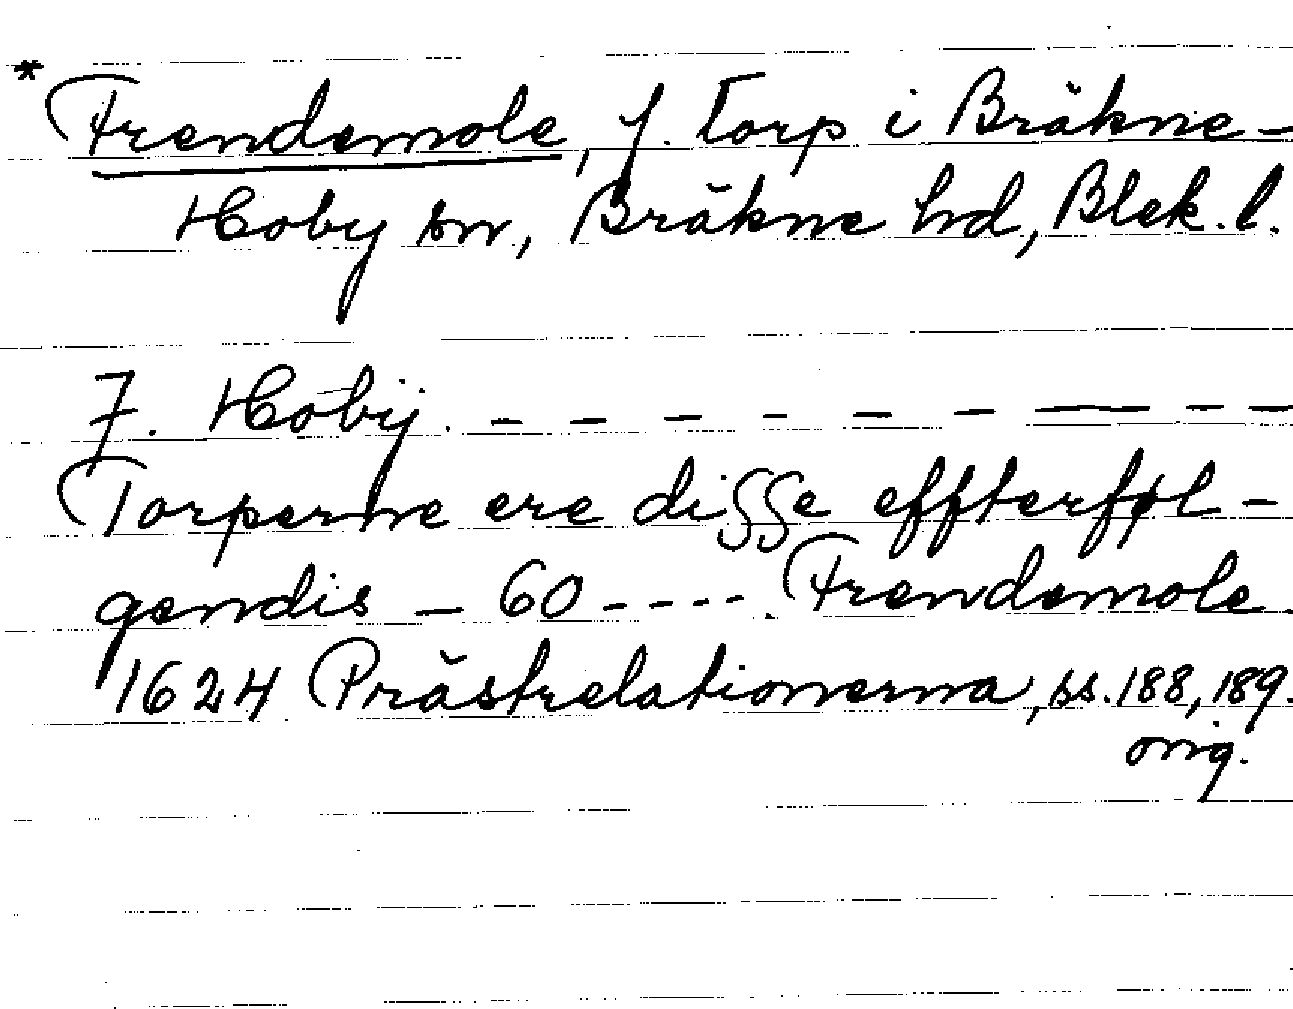 * Frendemole, f. Torp i Bräkne-
Hoby sn, Bräkne hd, Blek. l.
7. Hobÿ. - - - - - - - - -
Torperne ere disse effterføl-
gendis - 60 - - - - . Frendemole.
1624 Prästrelationerna, ss. 188, 189.
orig.